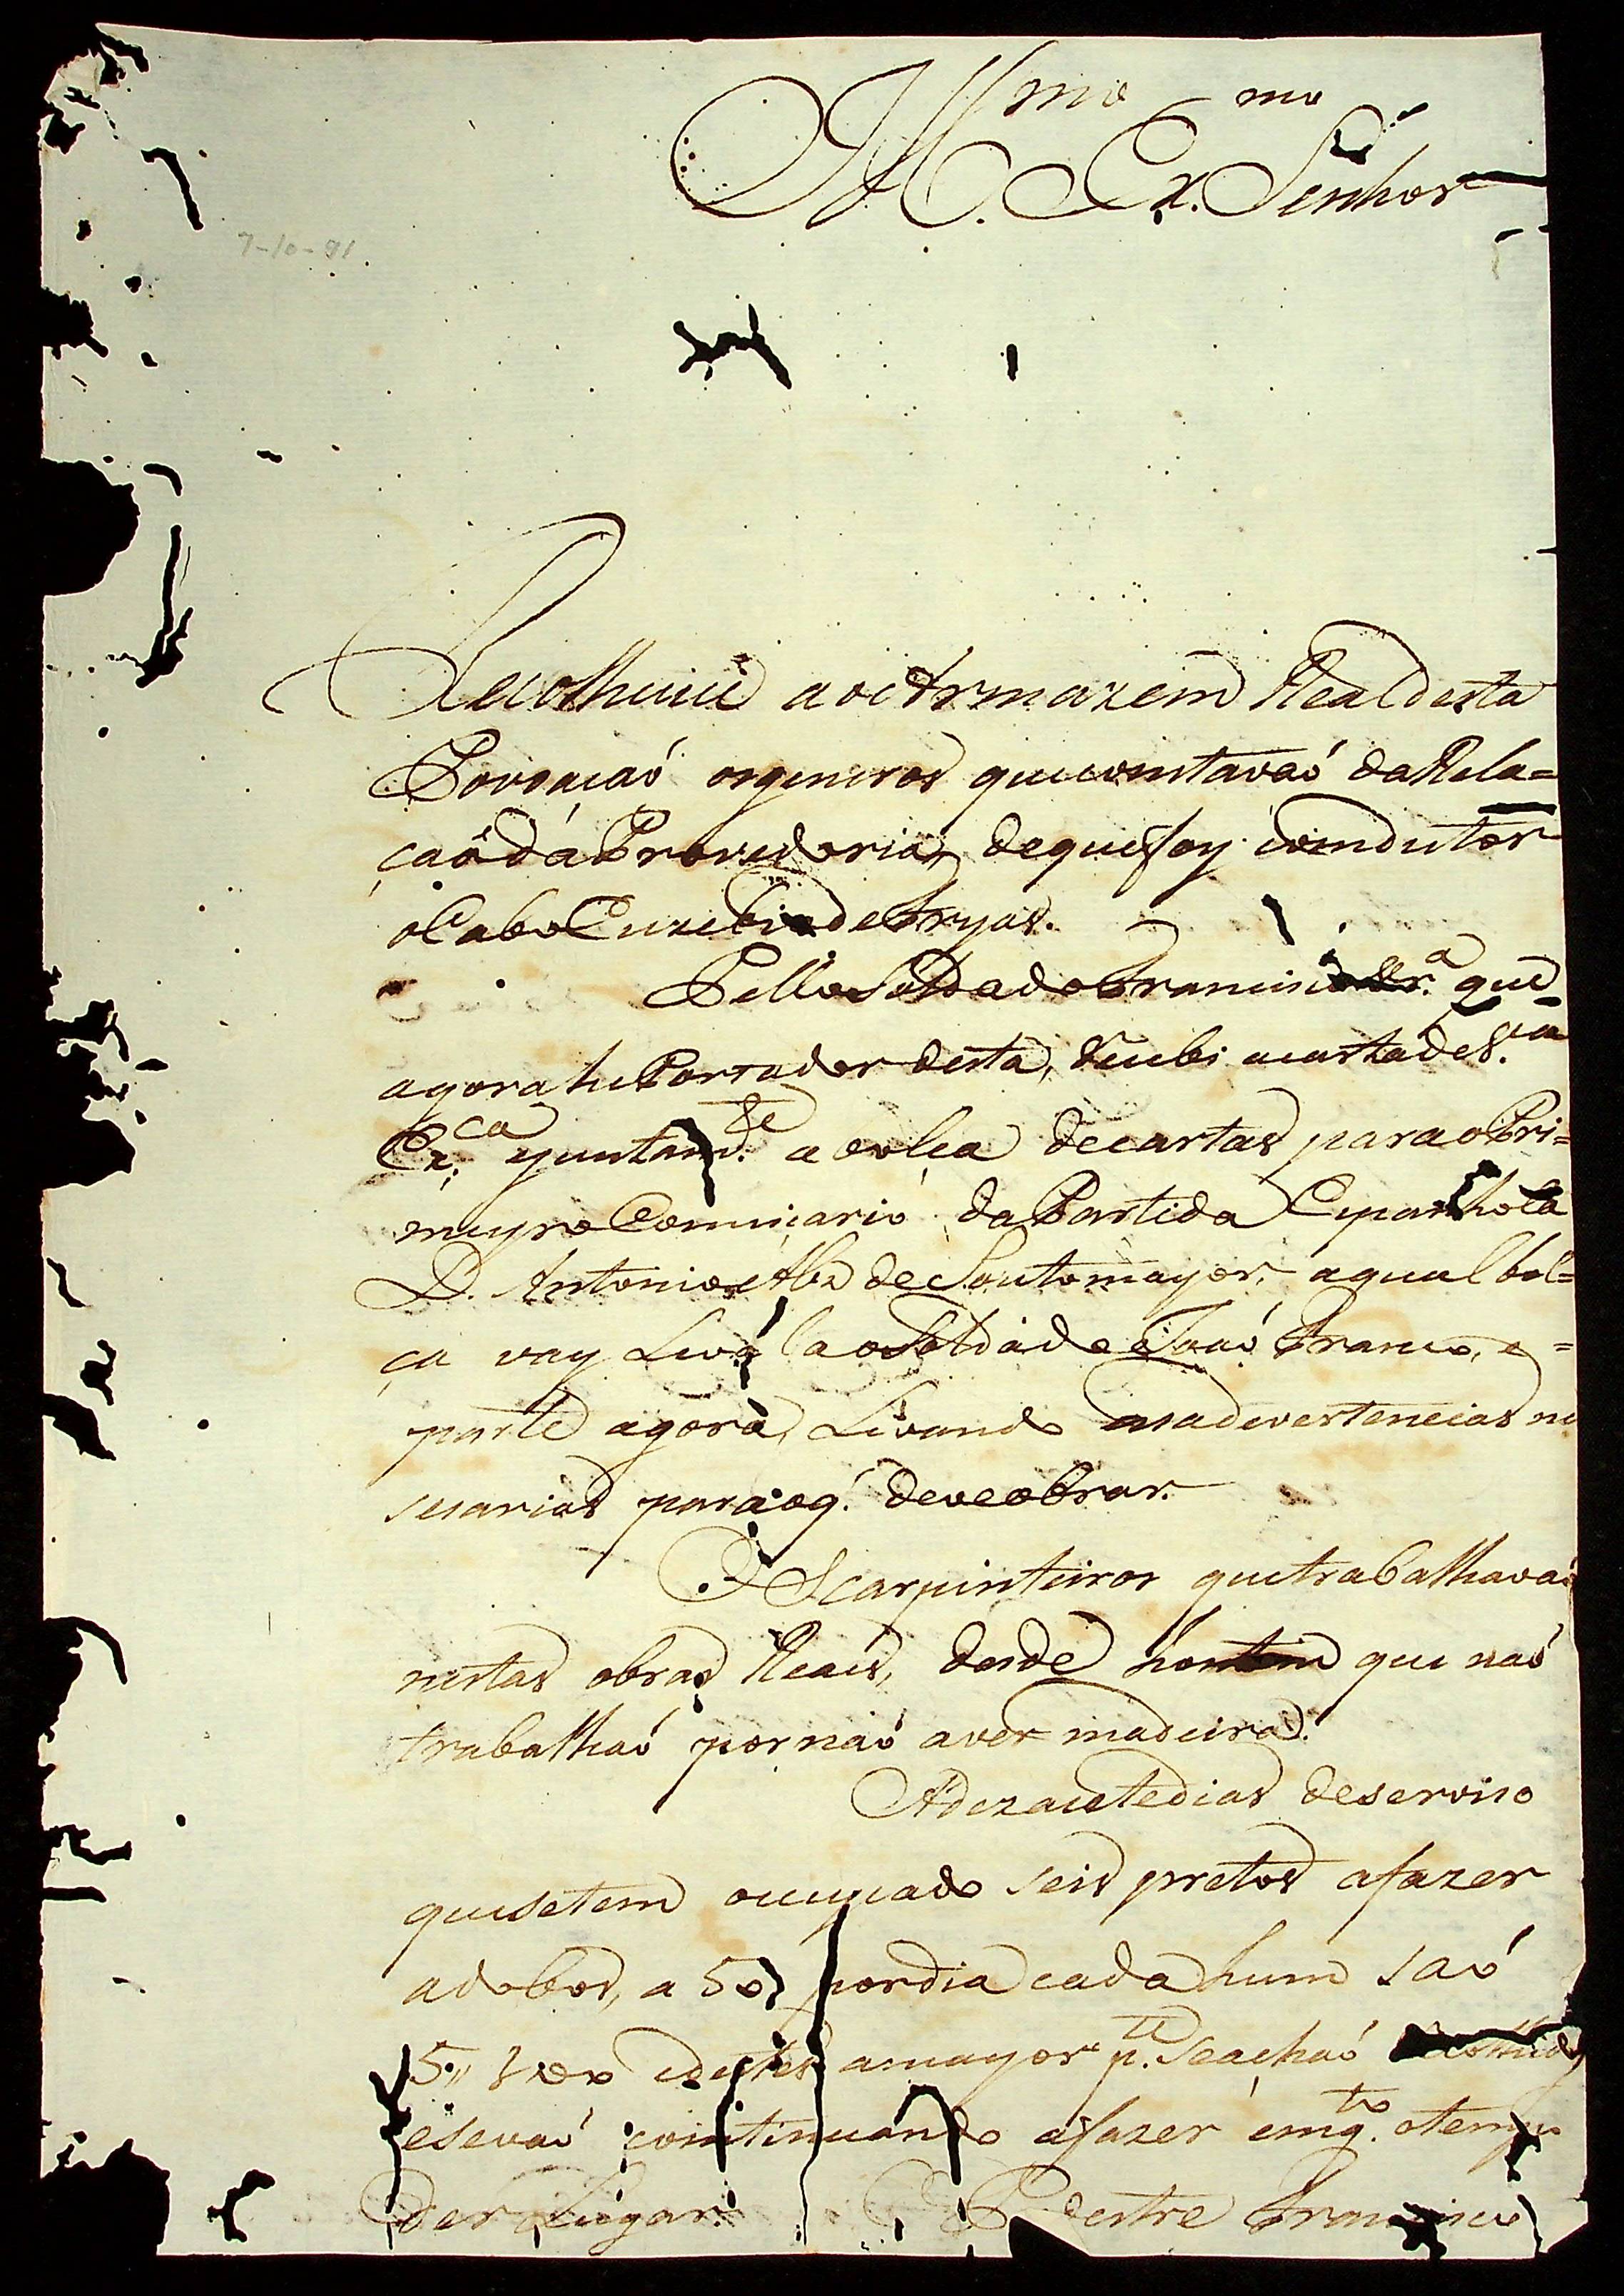 Ill.mo Ex.mo Senhor
7-10-91
Recolheuce ao Armazem Real desta
Povoacaó osgeneros queconstavaó daRela=
çaõ dá Provedoria, dequefoy condutor
oCabo Euzebio de Fryas.
Pello Soldado Francisco Per.a que
agora he Portador desta, recebi acartadeV.a
Ex.ca yuntam.te a bolça decartas paraoPri=
meyro Comiçario da Partida Espanhola
D. Antonio Alz de Soutomayor, aqual bol=
ça vay Levála oSoldado Joaó Franco, e=
parte agora, Levando asadevertencias ne
sesarias paraoq. deveobrar.
OScarpinteiros quetrabalhavaó
nestas obras Reais, desde hontem que naó
trabalhaó pornaó aver madeira.
Adezasetedias deserviso
quesetem ocupado seis pretos afazer
adobos, a 50 pordia cada hum saó
5,, 100 edestes amayor p.te Seachaó recolhidos
esevaó continuando afazer emq.to otempo
der Lugar. O Pedestre Francisco